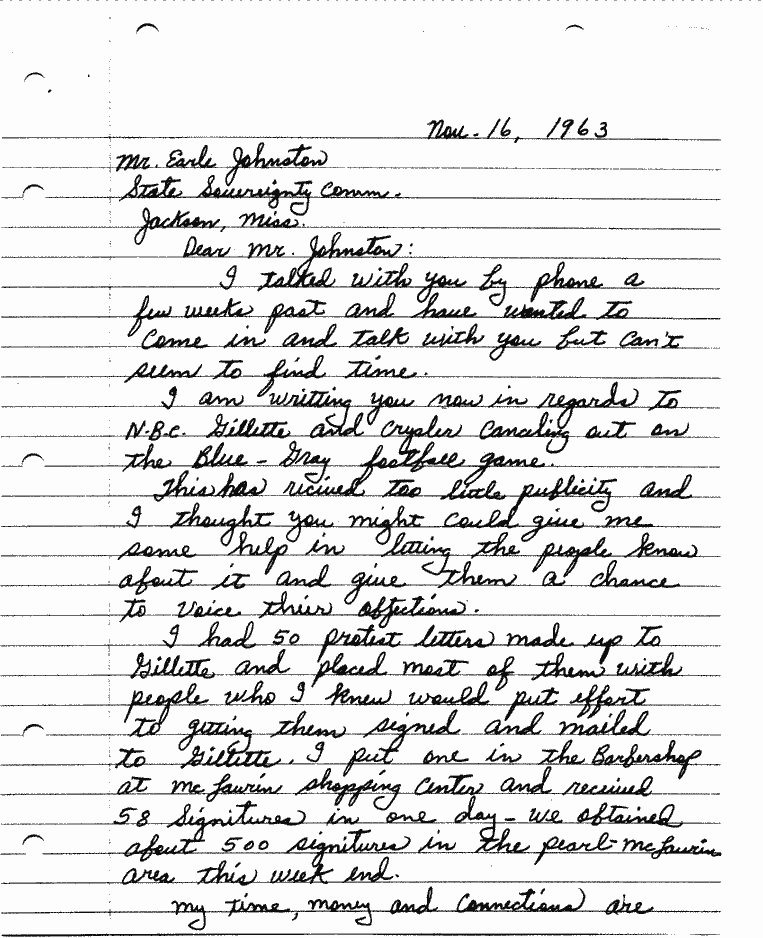 Nov. 16, 1963
Mr. Earle Johnston
State Sovereignty Comm.
Jackson, Miss.
Dear Mr. Johnston:
I talked with you by phone a
few weeks past and have wanted to
come in and talk with you but can't
seem to find time.
I am writting you now in regards to
N.B.C. Gillette and Crysler canceling out on
the Blue-Gray football game.
This has recieved too little publicity and
I thought you might could give me
some help in letting the people know
about it and give them a chance
to voice their objections.
I had 50 protest letters made up to
Gillette and placed most of them with
people who I knew would put effort
to getting them signed and mailed
to Gillette. I put one in the Barbershop
at McLaurin shopping Center and received
58 Signitures in one day - we obtained
about 500 signitures in the pearl-McLaurin
area this week end.
My time, money and connections are